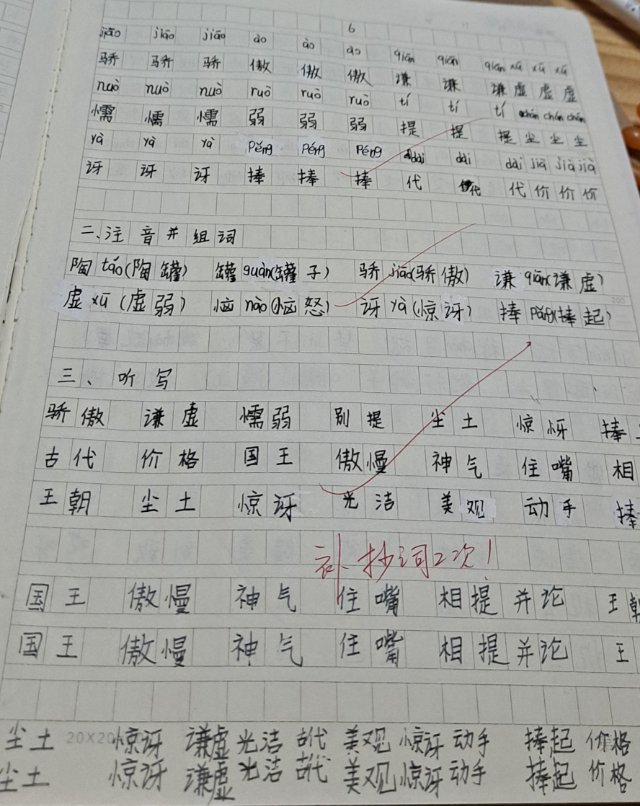 6
jiāo jiāo jiāo ào ào ào qiān qiān qiān xū xū xū
骄 骄 骄 傲 傲 傲 谦 谦 谦 虚 虚 虚
nuò nuò nuò ruò ruò ruò tí tí tí chén chén chén
懦 懦 懦 弱 弱 弱 提 提 提 尘 尘 尘
yà yà yà pěng pěng pěng dài dài dài jià jià jià
讶 讶 讶 捧 捧 捧 代 代 代 价 价 价
二、注音并组词
陶 táo(陶罐) 罐 guàn(罐子) 骄 jiāo(骄傲) 谦 qiān(谦虚)
虚 xū(虚弱) 恼 nǎo(恼怒) 讶 yà(惊讶) 捧 pěng(捧起)
三、听写
骄傲 谦虚 懦弱 别提 尘土 惊讶 捧
古代 价格 国王 傲慢 神气 住嘴 相
王朝 尘土 惊讶 光洁 美观 动手 捧
补抄词2次!
国王 傲慢 神气 住嘴 相提并论 王朝
国王 傲慢 神气 住嘴 相提并论 王
20×20
尘土 惊讶 谦虚 光洁 古代 美观 惊讶 动手 捧起 价格
尘土 惊讶 谦虚 光洁 古代 美观 惊讶 动手 捧起 价格